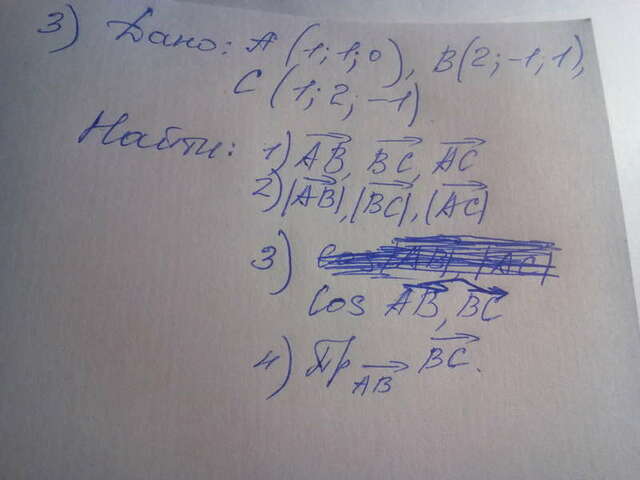 3) Дано: A (1; 1; 0), B(2; -1, 1),
C (1; 2; -1)
Найти: 1) AB, BC, AC
2) |AB|, |BC|, |AC|
3)
Cos AB, BC
4) Пр AB BC.